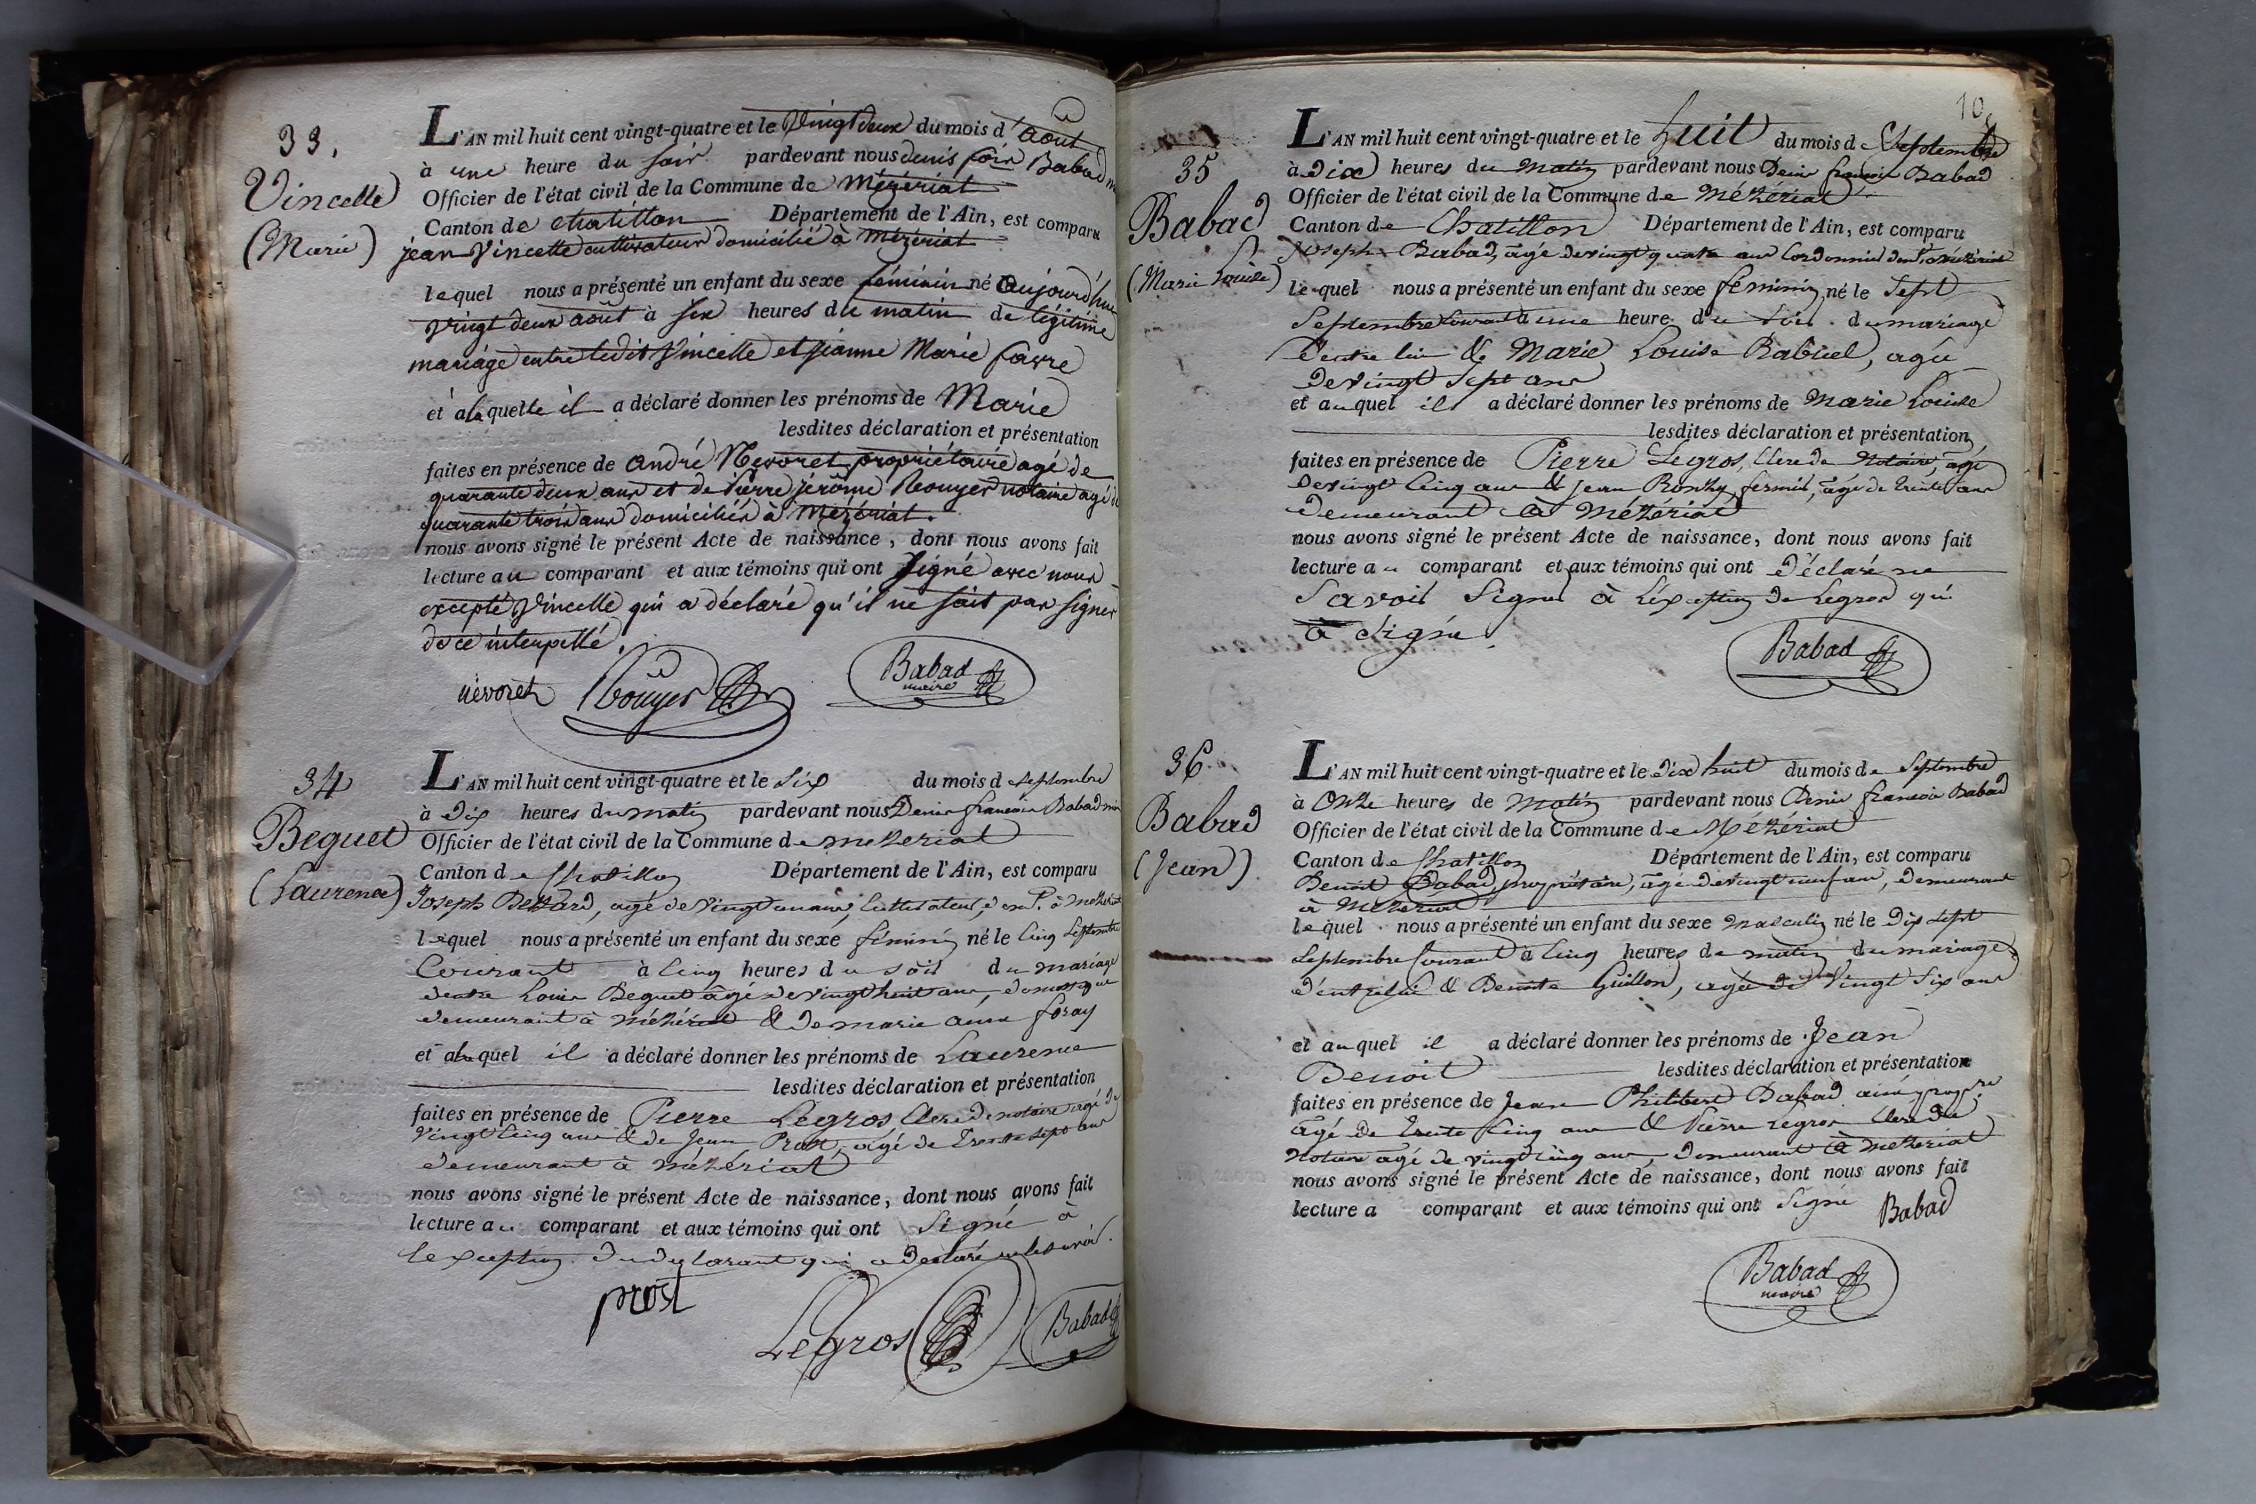 33.
Vincelle
(Marie)
L'AN mil huit cent vingt-quatre et le vingt deux du mois d'août
à une heure du soir pardevant nous denis fois Babad
Officier de l'état civil de la Commune de Mézériat
Canton de chatillon Département de l'Ain, est comparu
jean Vincelle cultivateur domicilié à Mézériat
lequel nous a présenté un enfant du sexe féminin né aujourd'hui
vingt deux août à six heures du matin de légitime
mariage entre ledit Vincelle et jeanne Marie favre
et à laquelle il a déclaré donner les prénoms de Marie
lesdites déclaration et présentation
faites en présence de andré Nevoret propriétaire agé de
quarante deux ans et de Pierre jerôme Nouyer notaire agé de
quarante trois ans domiciliés à Mézériat.
nous avons signé le présent Acte de naissance, dont nous avons fait
lecture au comparant et aux témoins qui ont signé avec nous
excepté Vincelle qui a déclaré qu'il ne sait pas signer
de ce interpellé.
nevoret Nouyer Babad
maire
34
Beguet
(Laurence)
L'AN mil huit cent vingt-quatre et le six du mois de septembre
à dix heures du matin pardevant nous Denis françois Babad
Officier de l'état civil de la Commune de mezeriat
Canton de Chatillon Département de l'Ain, est comparu
Joseph agé de vingt ans, cultivateur, à mezeriat
lequel nous a présenté un enfant du sexe féminin né le cinq septembre
Courant à cinq heures du soir du mariage
d'entre Louis Beguet âgé de vingt huit ans, domestique
demeurant à mézériat & de marie anne foray
et à laquel il a déclaré donner les prénoms de Laurence
lesdites déclaration et présentation
faites en présence de Pierre Legros Clerc de notaire agé de
vingt cinq ans & de Jean Prost, agé de trente sept ans
demeurant à mézériat
nous avons signé le présent Acte de naissance, dont nous avons fait
lecture au comparant et aux témoins qui ont signé à
lexception du declarant qui a declaré ne le savoir.
prost
Legros Babad
10
35
Babad
(Marie Louise)
L'AN mil huit cent vingt-quatre et le huit du mois de Septembre
à Dix heures du Matin pardevant nous Denis françois Babad
Officier de l'état civil de la Commune de Mézériat
Canton de Chatillon Département de l'Ain, est comparu
Joseph Babad, âgé de vingt quatre ans Cordonnier à Mézériat
lequel nous a présenté un enfant du sexe féminin né le Sept
Septembre Courant à une heure du soir du mariage
d'entre lui & Marie Louise Rabuel, agée
de vingt sept ans
et auquel il a déclaré donner les prénoms de Marie Louise
lesdites déclaration et présentation
faites en présence de Pierre Legros, Clerc de Notaire, agé
de vingt Cinq ans & Jean fermier, âgé de trente ans
Demeurant à Mézériat
nous avons signé le présent Acte de naissance, dont nous avons fait
lecture au comparant et aux témoins qui ont déclaré ne
Savoir Signer à Léxception de Legros qui
à signé.
Babad
36
Babad
(Jean)
L'AN mil huit cent vingt-quatre et le dix huit du mois de Septembre
à Onze heures de Matin pardevant nous Denis françois Babad
Officier de l'état civil de la Commune de Mézériat
Canton de Chatillon Département de l'Ain, est comparu
Benoit Babad, propriétaire, âgé de vingt neuf ans, demeurant
à Mézériat
lequel nous a présenté un enfant du sexe masculin né le Dix sept
Septembre Courant à Cinq heures de matin du mariage
d'entre lui & Benoite Guillon, agée de Vingt Six ans
et auquel il a déclaré donner les prénoms de Jean
Benoit lesdites déclaration et présentation
faites en présence de Jean Philibert Babad ainé propre
âgé de trente Cinq ans & Pierre Legros Clerc de
Notaire agé de vingt cinq ans, demeurant à Mezeriat
nous avons signé le présent Acte de naissance, dont nous avons fait
lecture a comparant et aux témoins qui ont Signé Babad
Babad
maire